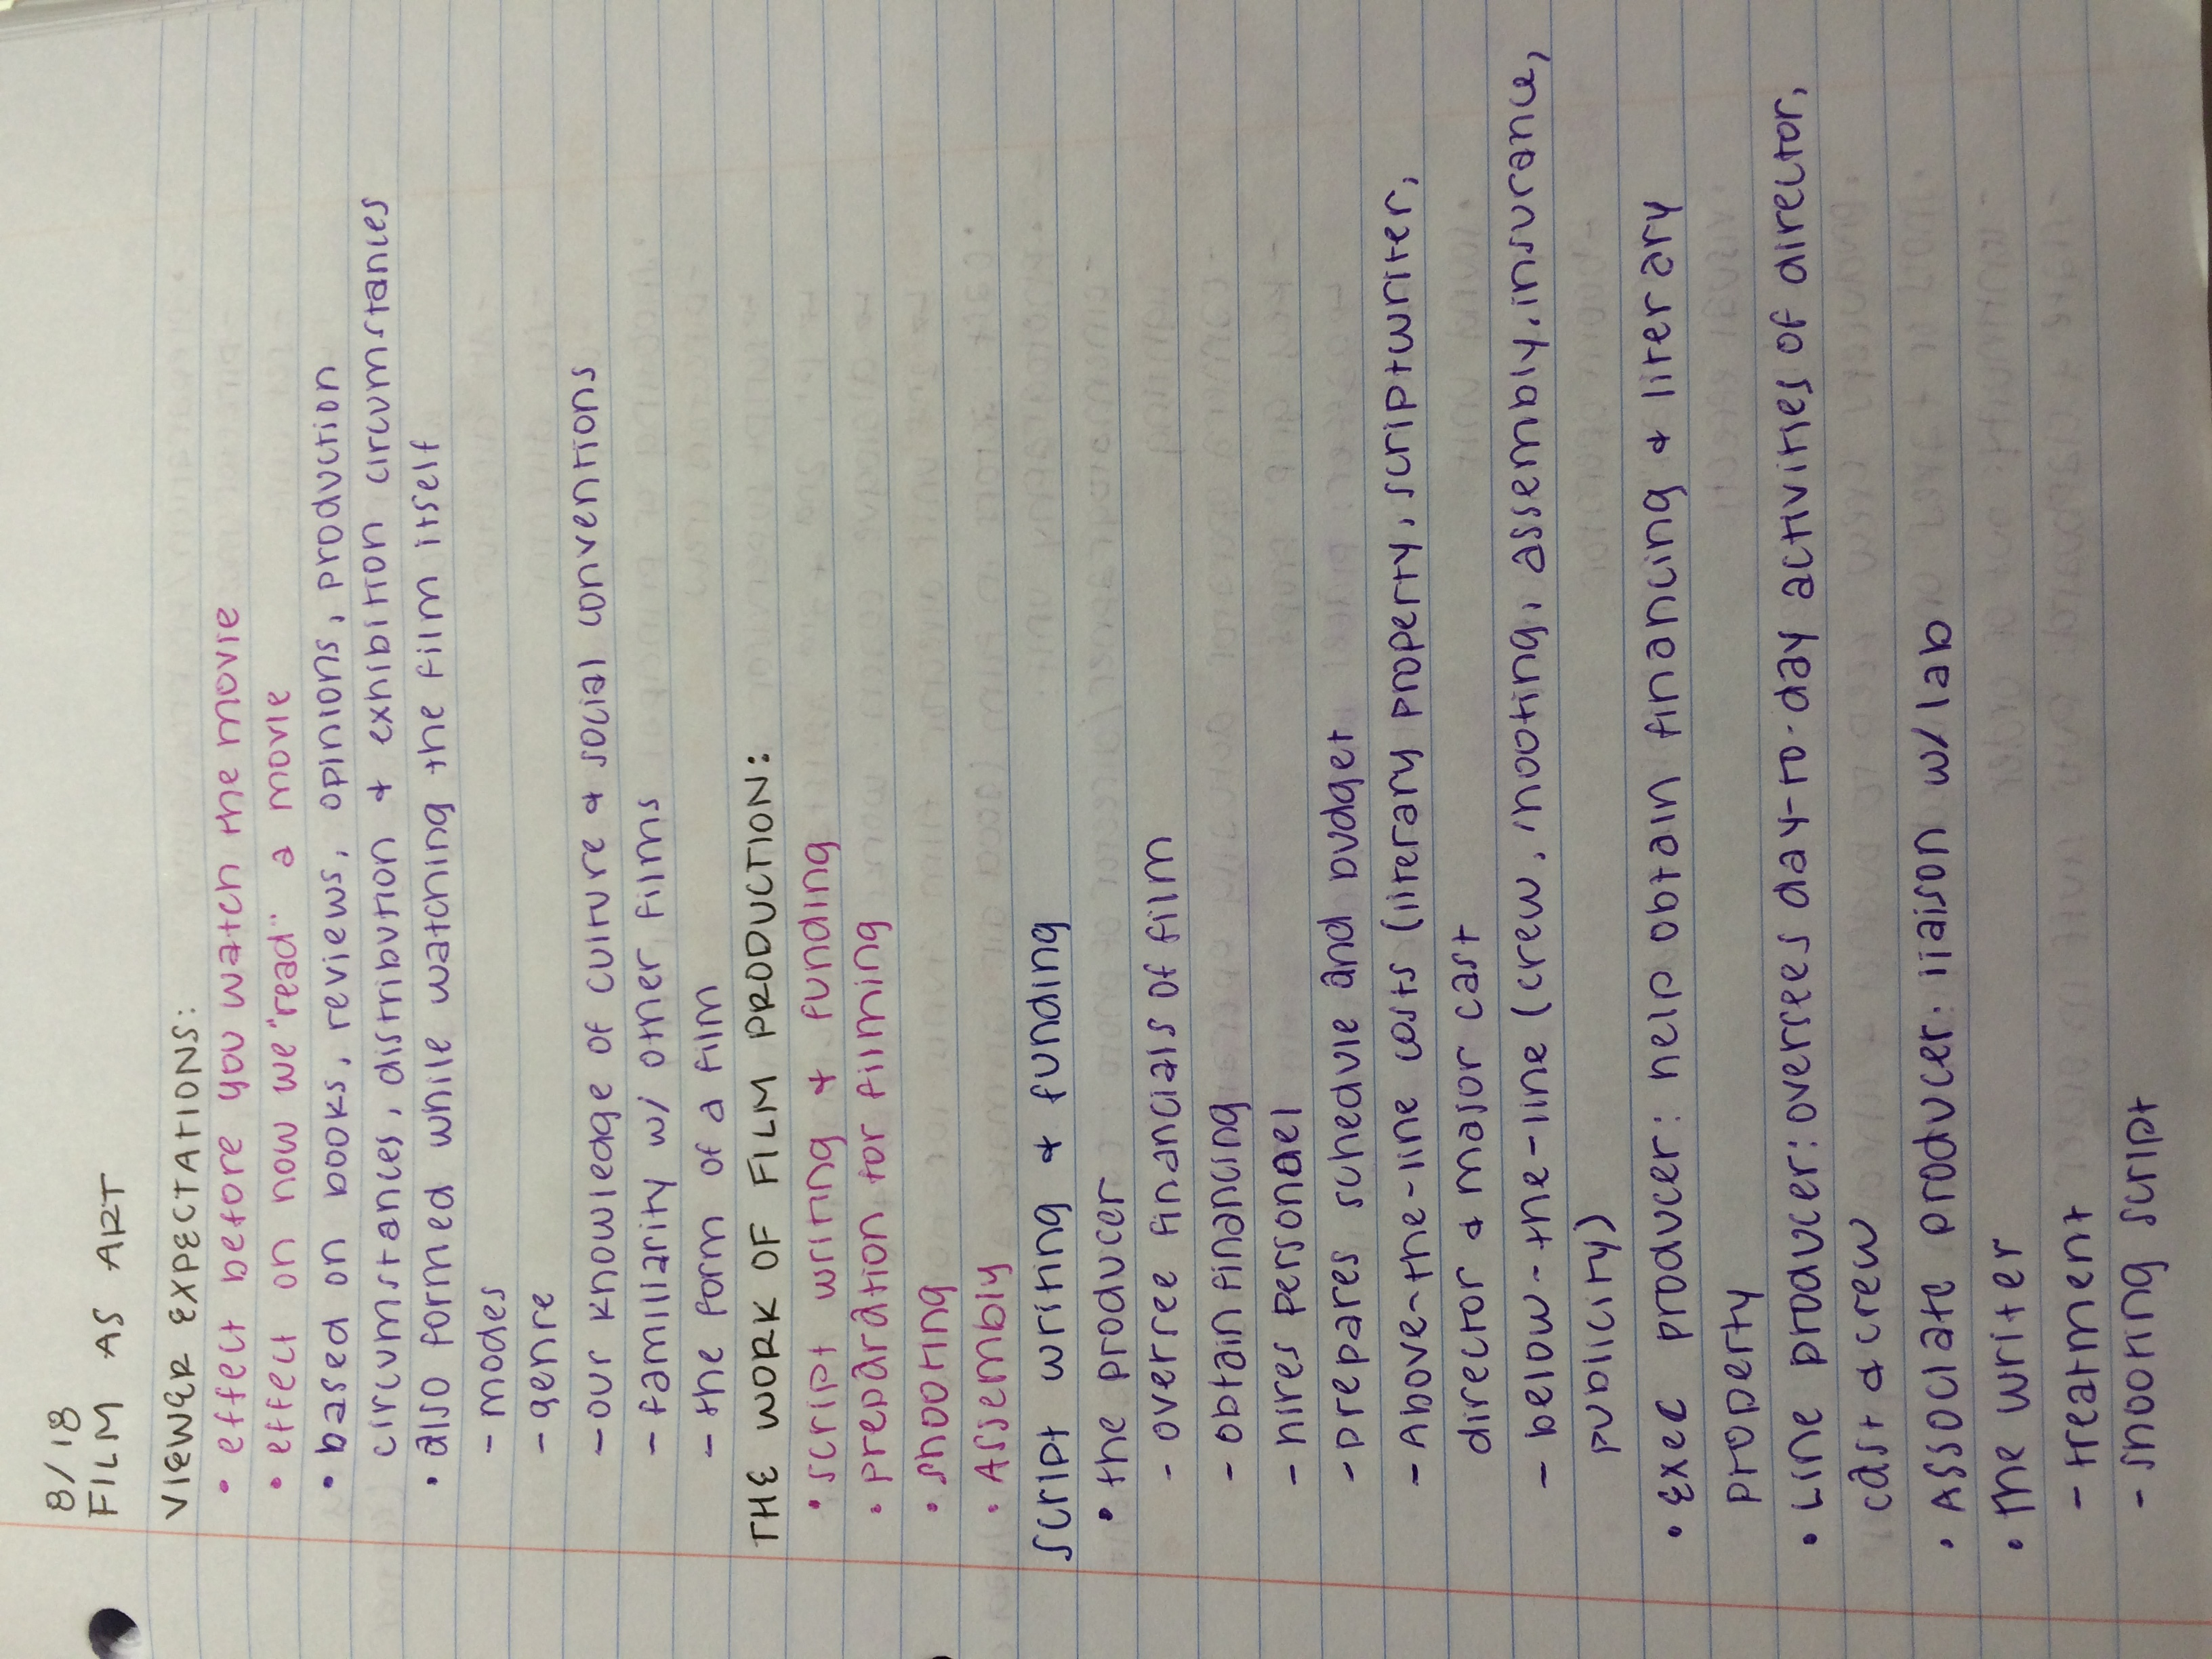 8/18
FILM AS ART
VIEWER EXPECTATIONS:
• effect before you watch the movie
• effect on how we "read" a movie
• based on books, reviews, opinions, production
circumstances, distribution & exhibition circumstances
• also formed while watching the film itself
- modes
- genre
- our knowledge of culture & social conventions
- familiarity w/ other films
- the form of a film
THE WORK OF FILM PRODUCTION:
• script writing & funding
• preparation for filming
• shooting
• Assembly
script writing & funding
• the producer
- overree financials of film
- obtain financing
- hires personael
- prepares schedule and budget
- Above-the-line costs (literary property, scriptwriter,
director & major cast
- below-the-line (crew, shooting, assembly, insurance,
publicity)
• Exec producer: help obtain financing & literary
property
• Line producer: oversees day-to-day activities of director,
cast & crew
• Associate producer: liaison w/ lab
• The writer
- treatment
- shooting script